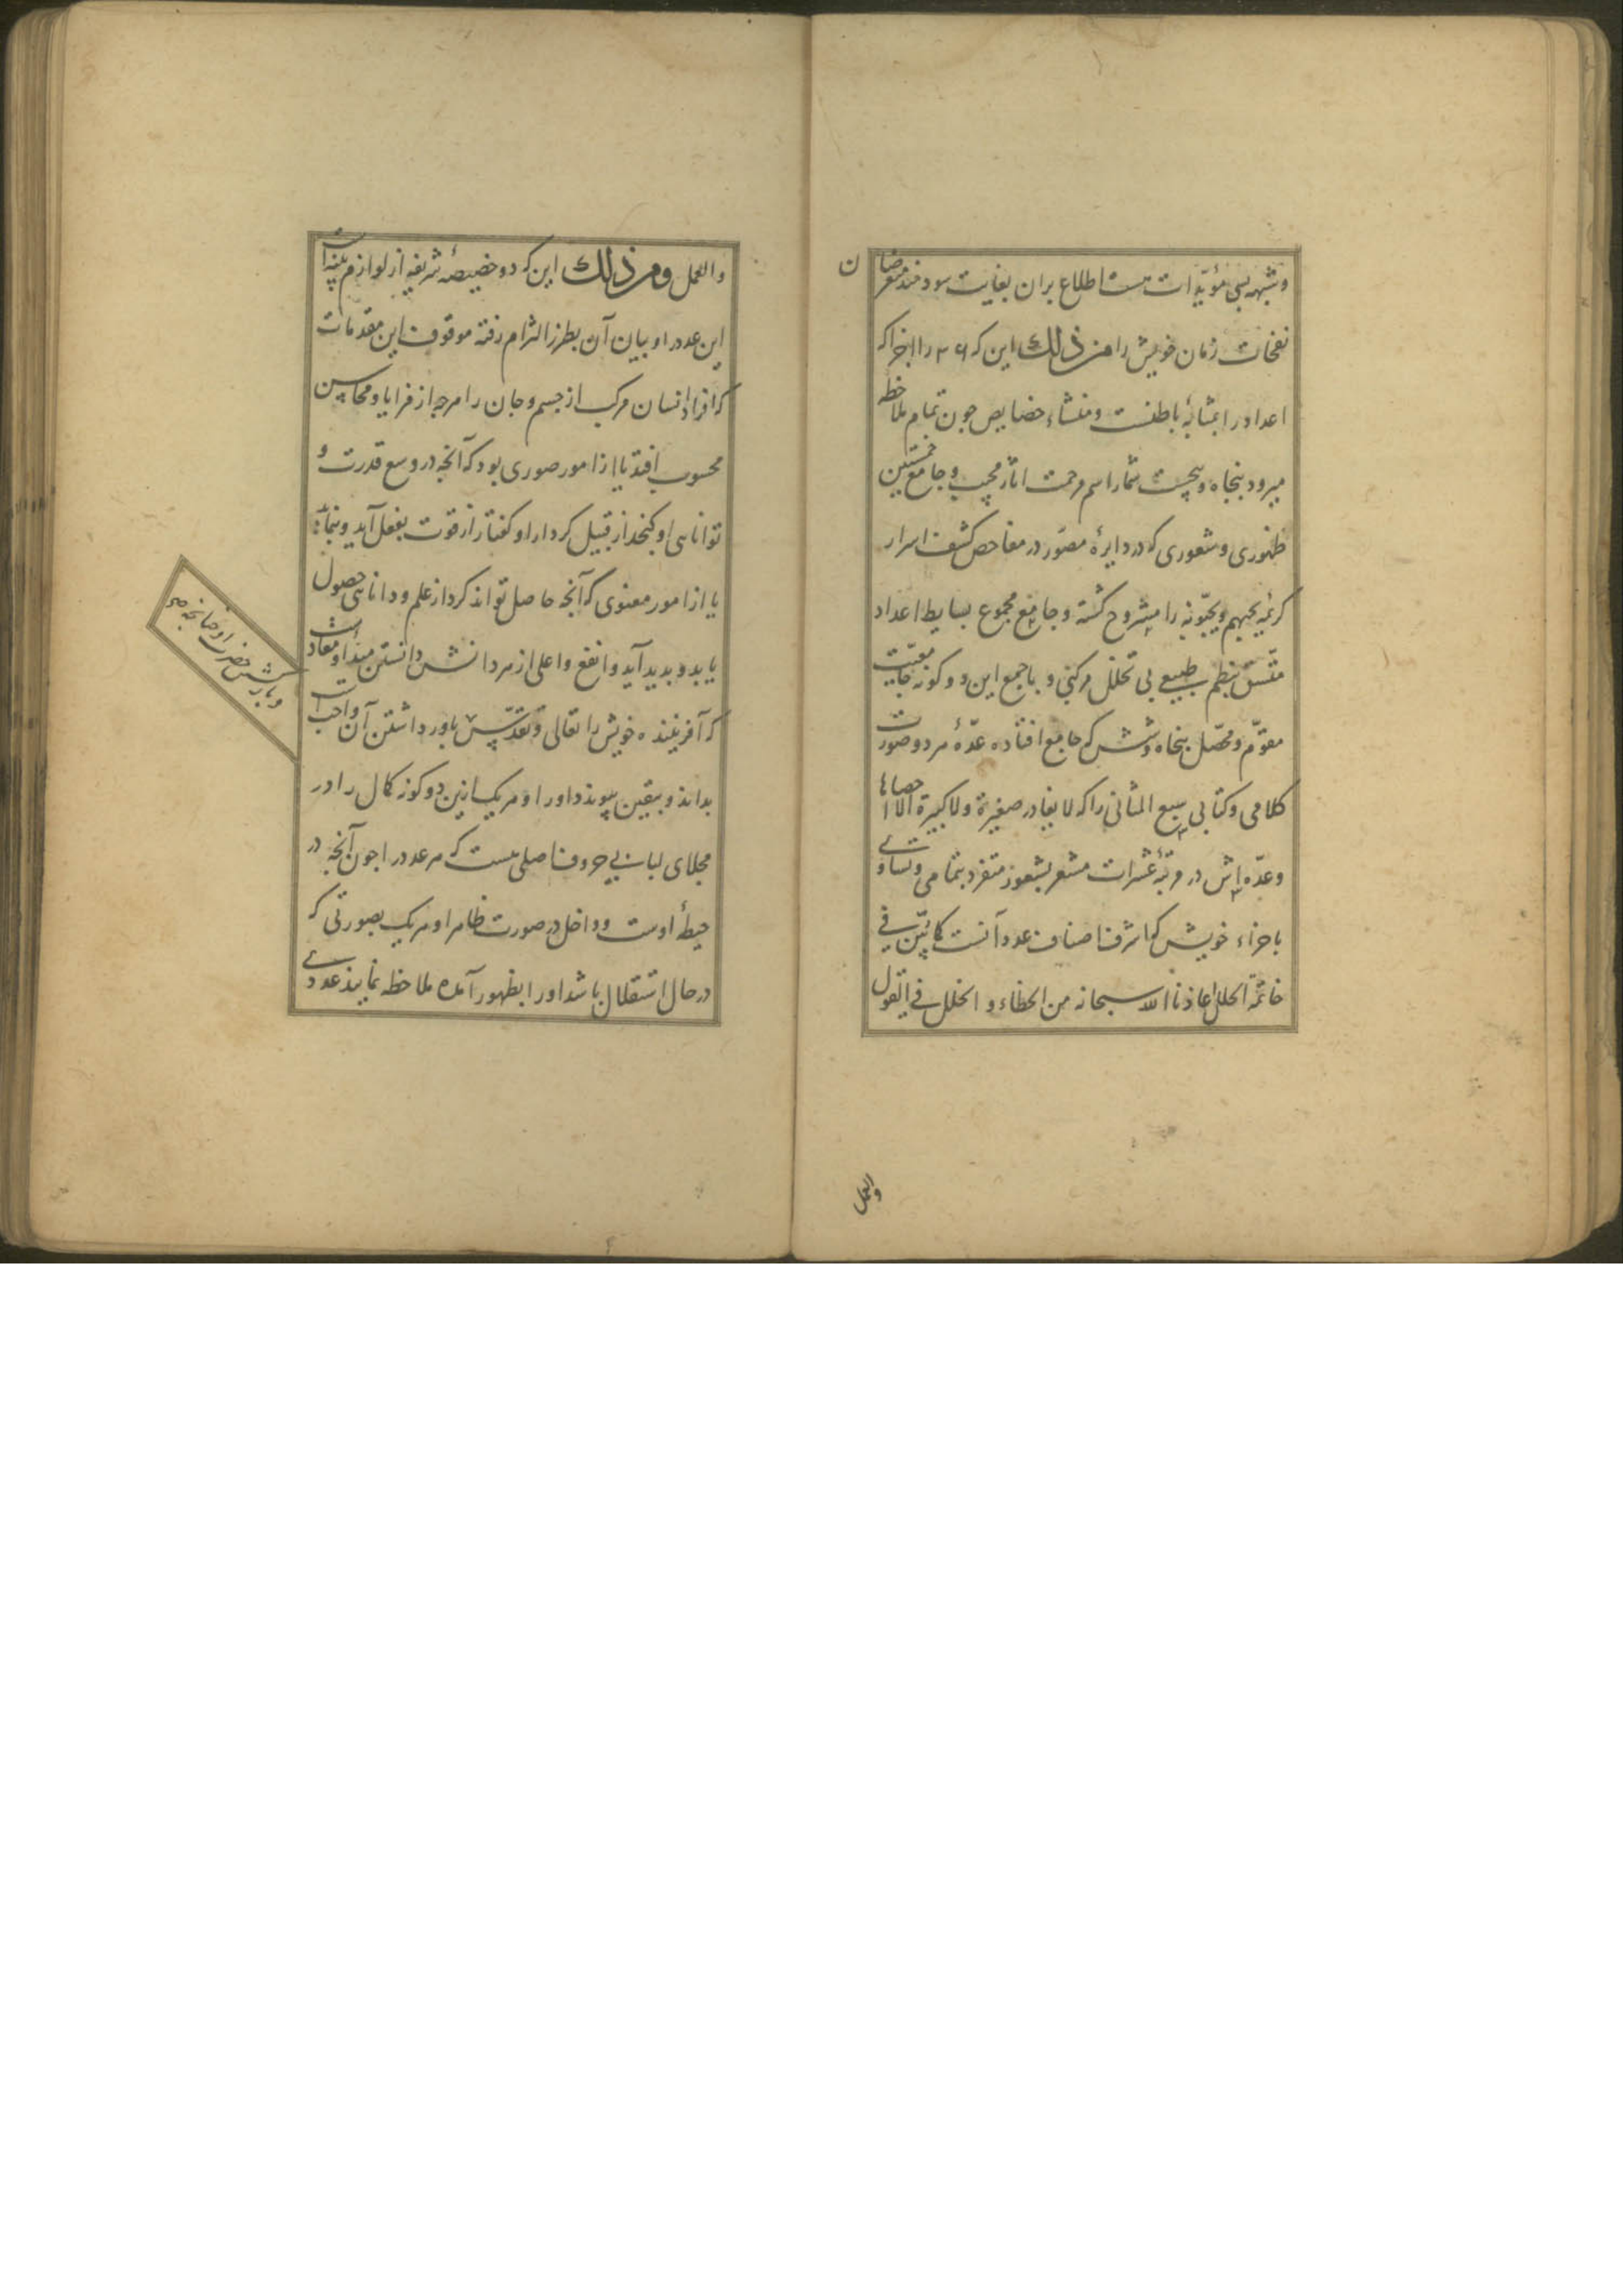 و شبهه بسی مؤیّدات هست اطلاع بران بغایت سودمند متعرضان
نفخات زمان خویش را من ذلك این که را اجزا که
اعداد را بمثابهٔ باطنست و منشاء خصایص چون تمام ملاحظه
میرود پنجاه و پنجست شمار اسم مرحمت اثار مجیب و جامع نخستین
ظهوری و شعوری که در دایرهٔ مصوّر در مفاحص کشف اسرار
کریمهٔ یحبهم و یحبّونه را مشروح کشته و جامع مجموع بسایط اعداد
متّسق بنظم طبیعی بی تخلل مرکبی و با جمع این دو کونه جامعیت
مقوّم و محصّل پنجاه و شش که جامع افتاده عدّهٔ هر دو صورت
کلامی و کتابی سبع المثانی را که لا یغادر صغیرة ولا کبیرة الا احصاها
و عدّه اش در مرتبهٔ عشرات مشعر بشعور متفرد بتمامی و تساوی
باجزاء خویش که اشرف اصناف عدد آنست کما تبیّن فی
خاتمة الحلل اعاذنا الله سبحانه من الخطاء و الخلل فی القول
والعمل
والعمل و من ذلك این که دو خصیصهٔ شریفه از لوازم بینات
این عدد را و بیان آن بطرز التزام رفته موقوف این مقدمات
که افراد انسان مرکب از جسم و جان را هرچه از مزایا و محاسن
محسوب افتد یا از امور صوری بود که آنچه در وسع قدرت و
توانایی او کنجد از قبیل کردار او کفتار از قوت بفعل آید و بنماید
یا از امور معنوی که آنچه حاصل تواند کرد از علم و دانایی حصول
یابد و بدید آید و انفع و اعلی از هر دانش دانستن مبدأ و معادست
که آفریننده خویش را تعالی و تقدّس باور داشتن آن واجبست
و بازگشتن حضرت او چنانچه هر
بداند و بیقین پیوندد اورا و هریک ازین دو کونه کمال را در
مجلای لباب بی حروف اصلی هست که هر عدد را چون آنچه در
حیطهٔ اوست و داخل در صورت ظاهر او هریک بصورتی که
در حال استقلال باشد اورا بظهور آمده ملاحظه نمایند عددی